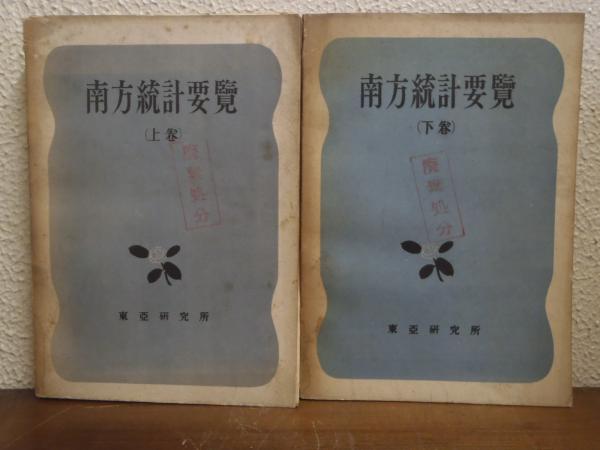 南方統計要覽
(上卷)
廃棄処分
東亞研究所
南方統計要覽
(下卷)
廃棄処分
東亞研究所